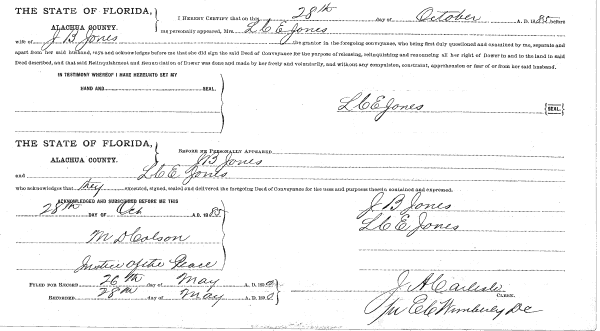 THE STATE OF FLORIDA, ALACHUA COUNTY.
I HEREBY CERTIFY that on this 28th day of October A. D. 1885 before
me personally appeared, Mrs. L C E Jones
wife of J B Jones the grantor in the foregoing conveyance, who being first duly questioned and examined by me, separate and
apart from her said husband, says and acknowledges before me that she did sign the said Deed of Conveyance for the purpose of releasing, relinquishing and renouncing all her right of Dower in and to the land in said
Deed described, and that said Relinquishment and Renunciation of Dower was done and made by her freely and voluntarily, and without any compulsion, constraint, apprehension or fear of or from her said husband.
IN TESTIMONY WHEREOF I HAVE HEREUNTO SET MY
HAND AND SEAL.
L C E Jones {SEAL.}
THE STATE OF FLORIDA, ALACHUA COUNTY.
BEFORE ME PERSONALLY APPEARED
J B Jones
and L C E Jones
who acknowledges that they executed, signed, sealed and delivered the foregoing Deed of Conveyance for the uses and purposes therein contained and expressed.
ACKNOWLEDGED AND SUBSCRIBED BEFORE ME THIS
28th DAY OF Oct A.D. 1885
M D Colson
Justice of the Peace
J B Jones
L C E Jones
FILED FOR RECORD 26th day of May A. D. 1890
RECORDED 28th day of May A. D. 1890
J A Carlisle CLERK.
pr E C Wimberley DC